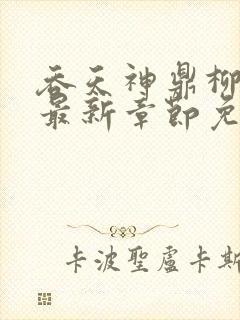 吞天神鼎柳
最新章節免
卡波聖盧卡斯